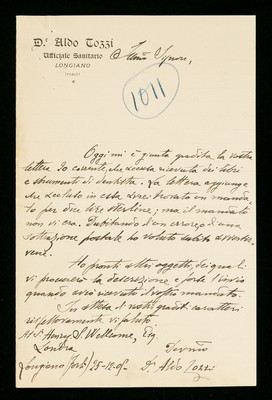 Dr. Aldo Tozzi
Ufficiale Sanitario
LONGIANO
Illmo Signore,
1011
Oggi mi è giunta gradita la vostra
lettera 20 corrente, che accusa ricevuta dei libri
e strumenti di dentista; la lettera aggiunge
che acclusa in essa avrei trovato un manda-
to per due lire sterline; ma il mandato
non vi era. Dubitando d'un errore o d'una
sottrazione postale ho voluto subito avvertir-
vene.
Ho pronti altri oggetti, dei quali
vi procurerò la descrizione e forse l'invio
quando avrò ricevuto il vostro mandato.
In attesa di vostri graditi caratteri
rispettosamente vi saluto
Al Sr. Henry S. Wellcome, Esq.
Londra
Devmo
Longiano 25-12-
Dr. Aldo Tozzi